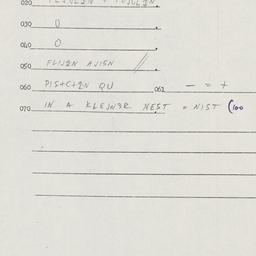 020
030 0
040 0
050 FLIJEN AVISN //
060 PIS+C+IN QU 061 - = +
070 IN A KLEJNER NEST = NIST (100